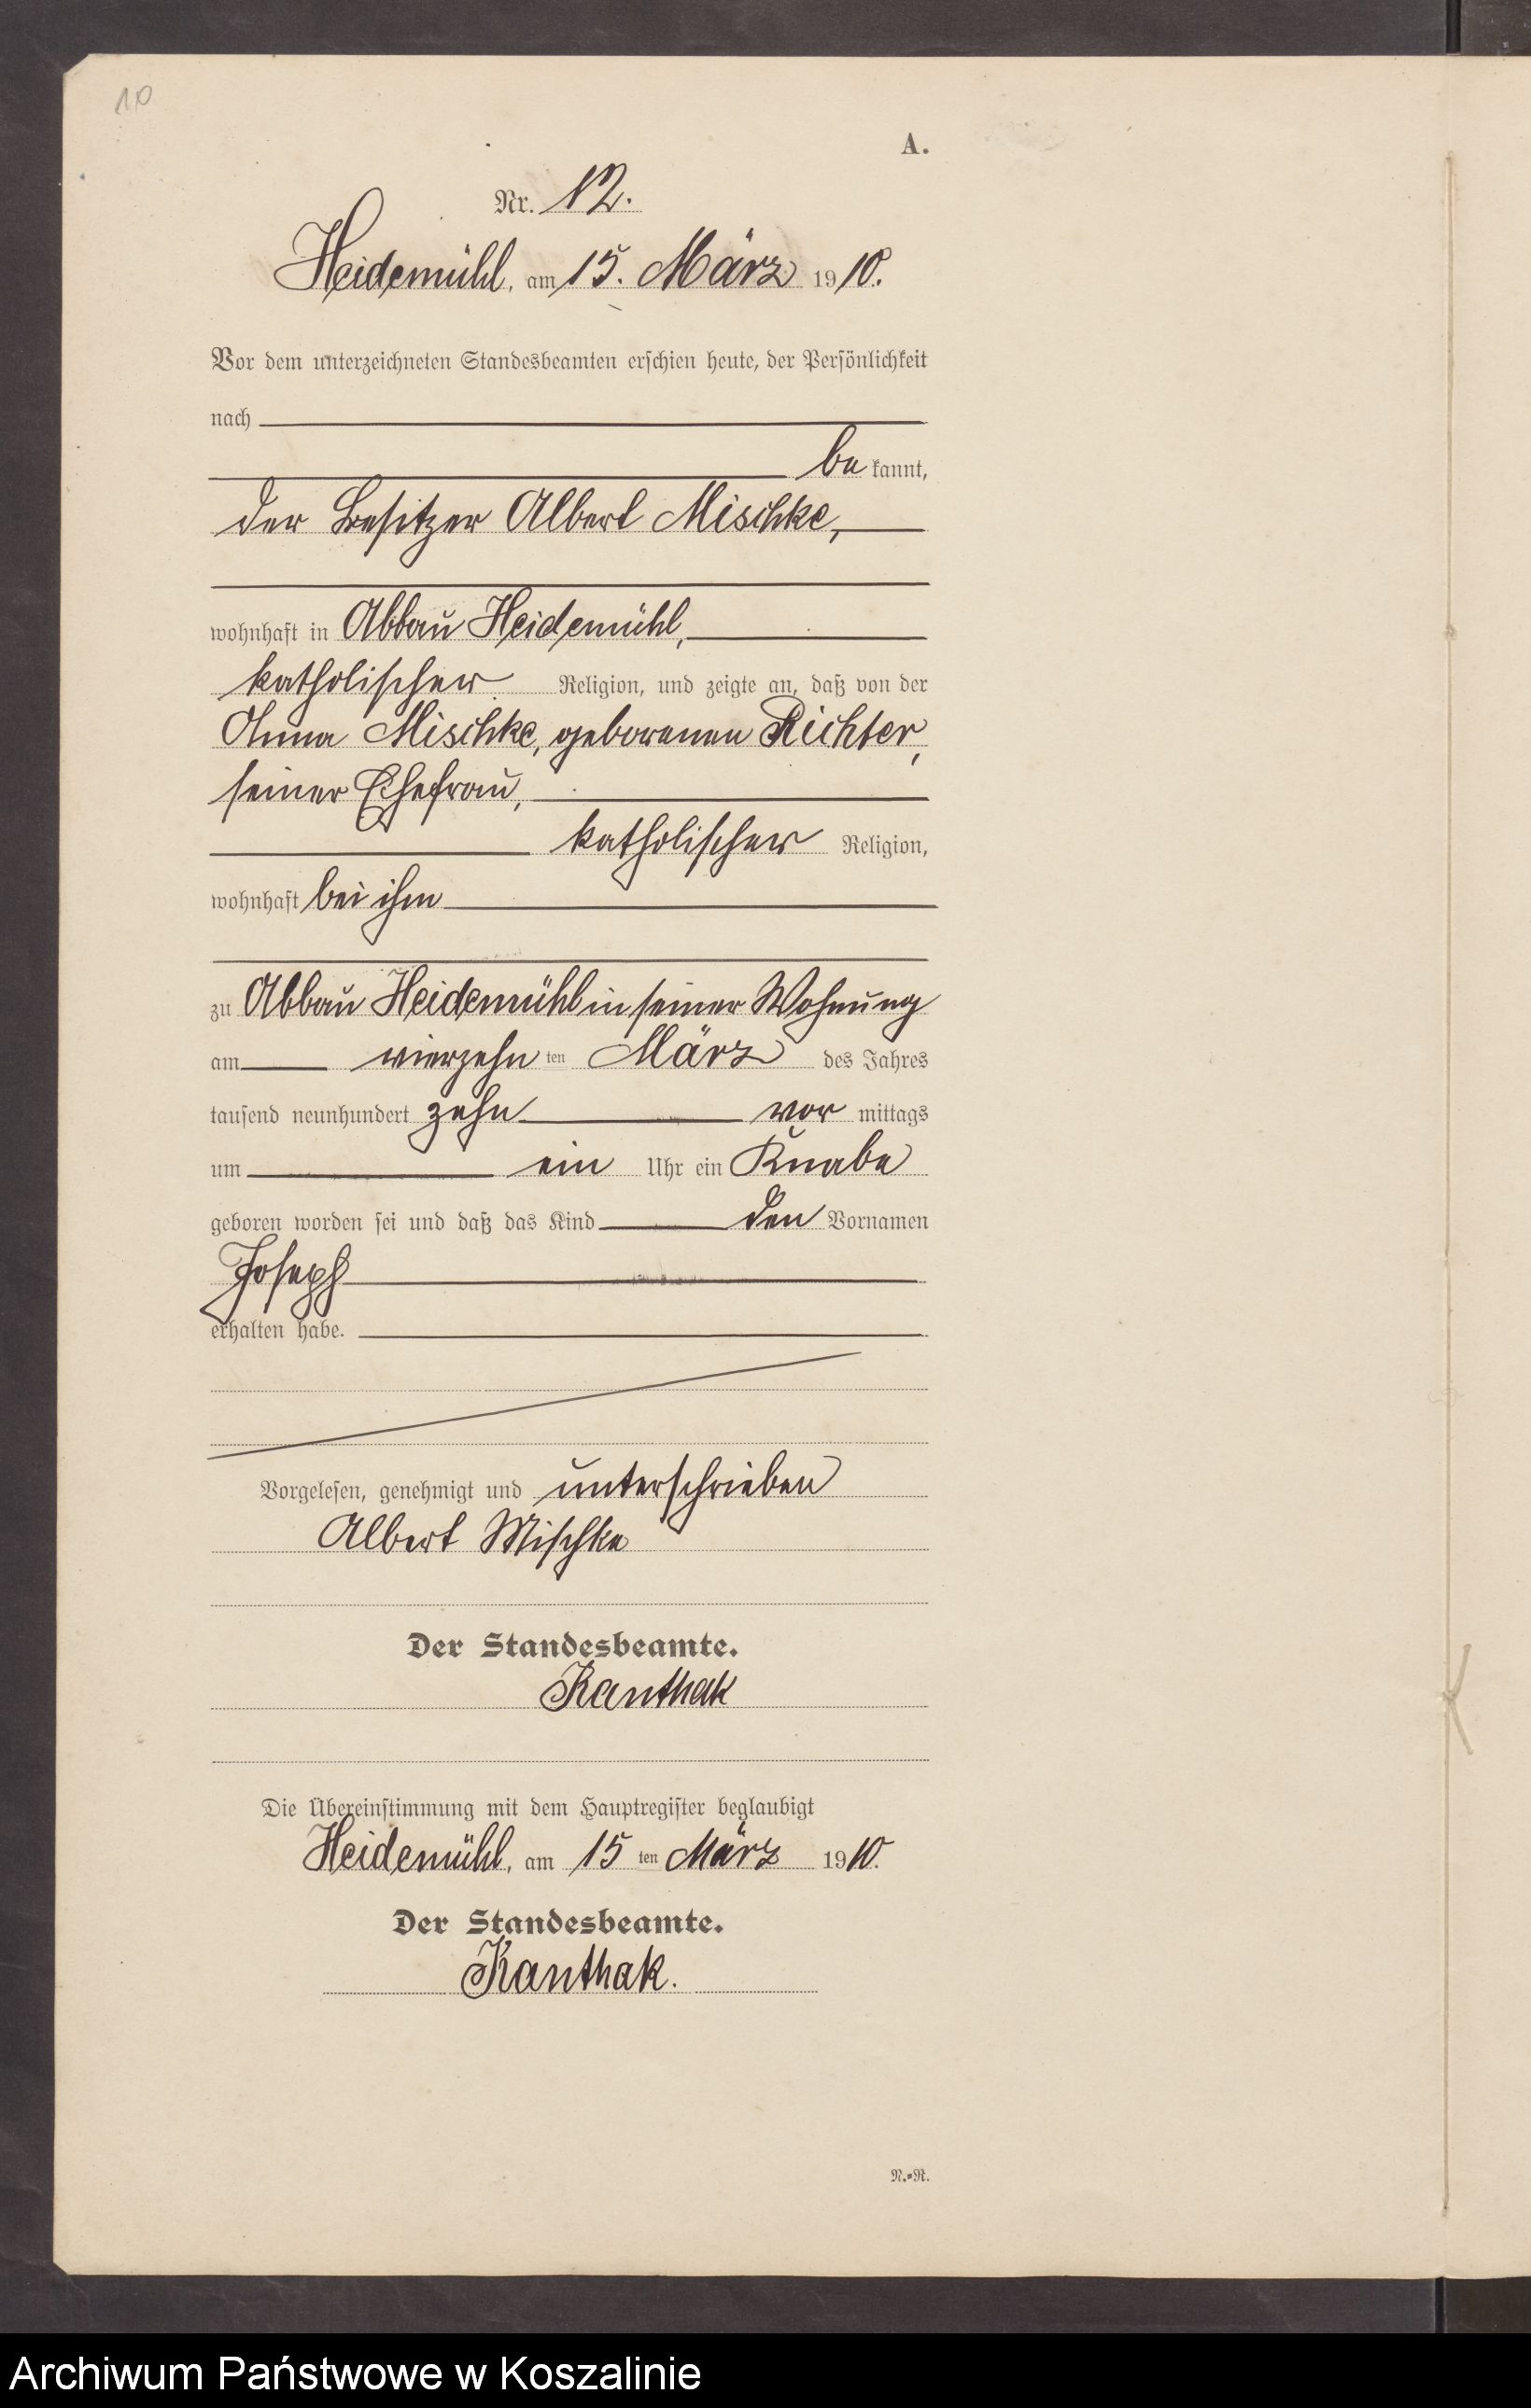 10
A.
Nr. 12.
Heidemühl, am 15. März 1910.
Vor dem unterzeichneten Standesbeamten erschien heute, der Persönlichkeit
nach
be kannt,
der Besitzer Albert Mischke,
wohnhaft in Abbau Heidemühl,
katholischer Religion, und zeigte an, daß von der
Anna Mischke, geborenen Richter,
seiner Ehefrau,
katholischer Religion,
wohnhaft bei ihm
zu Abbau Heidemühl in seiner Wohnung
am vierzehn ten März des Jahres
tausend neunhundert zehn vor mittags
um ein Uhr ein Knabe
geboren worden sei und daß das Kind den Vornamen
Joseph
erhalten habe.
Vorgelesen, genehmigt und unterschrieben
Albert Mischke
Der Standesbeamte.
Kanthak
Die Übereinstimmung mit dem Hauptregister beglaubigt
Heidemühl, am 15 ten März 1910.
Der Standesbeamte.
Kanthak.
N.=R.
Archiwum Państwowe w Koszalinie